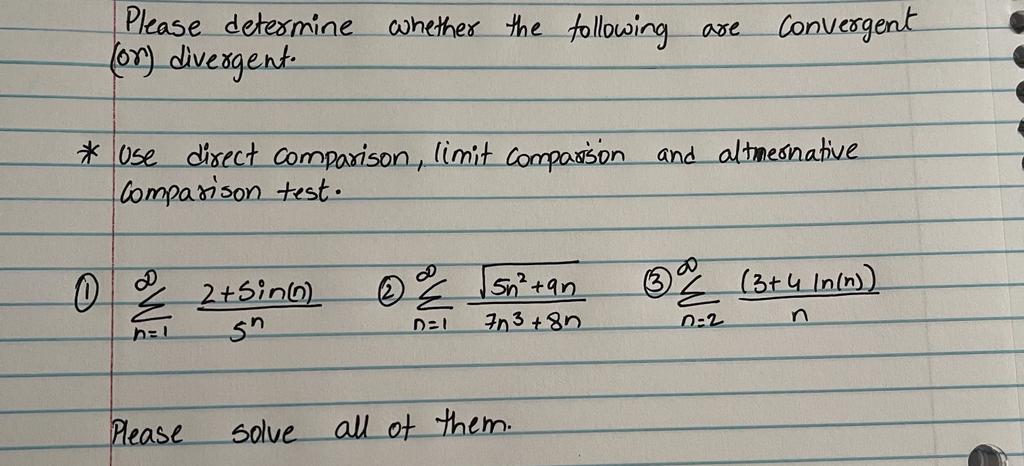 Please determine whether the following are Convergent
(or) divergent.
* Use direct comparison, limit comparison and altmernative
Comparison test.
① ∞ Σ n=1 2+Sin(n) / 5ⁿ ② ∞ Σ n=1 √5n²+9n / 7n³+8n ③ ∞ Σ n=2 (3+4 ln(n)) / n
Please solve all of them.